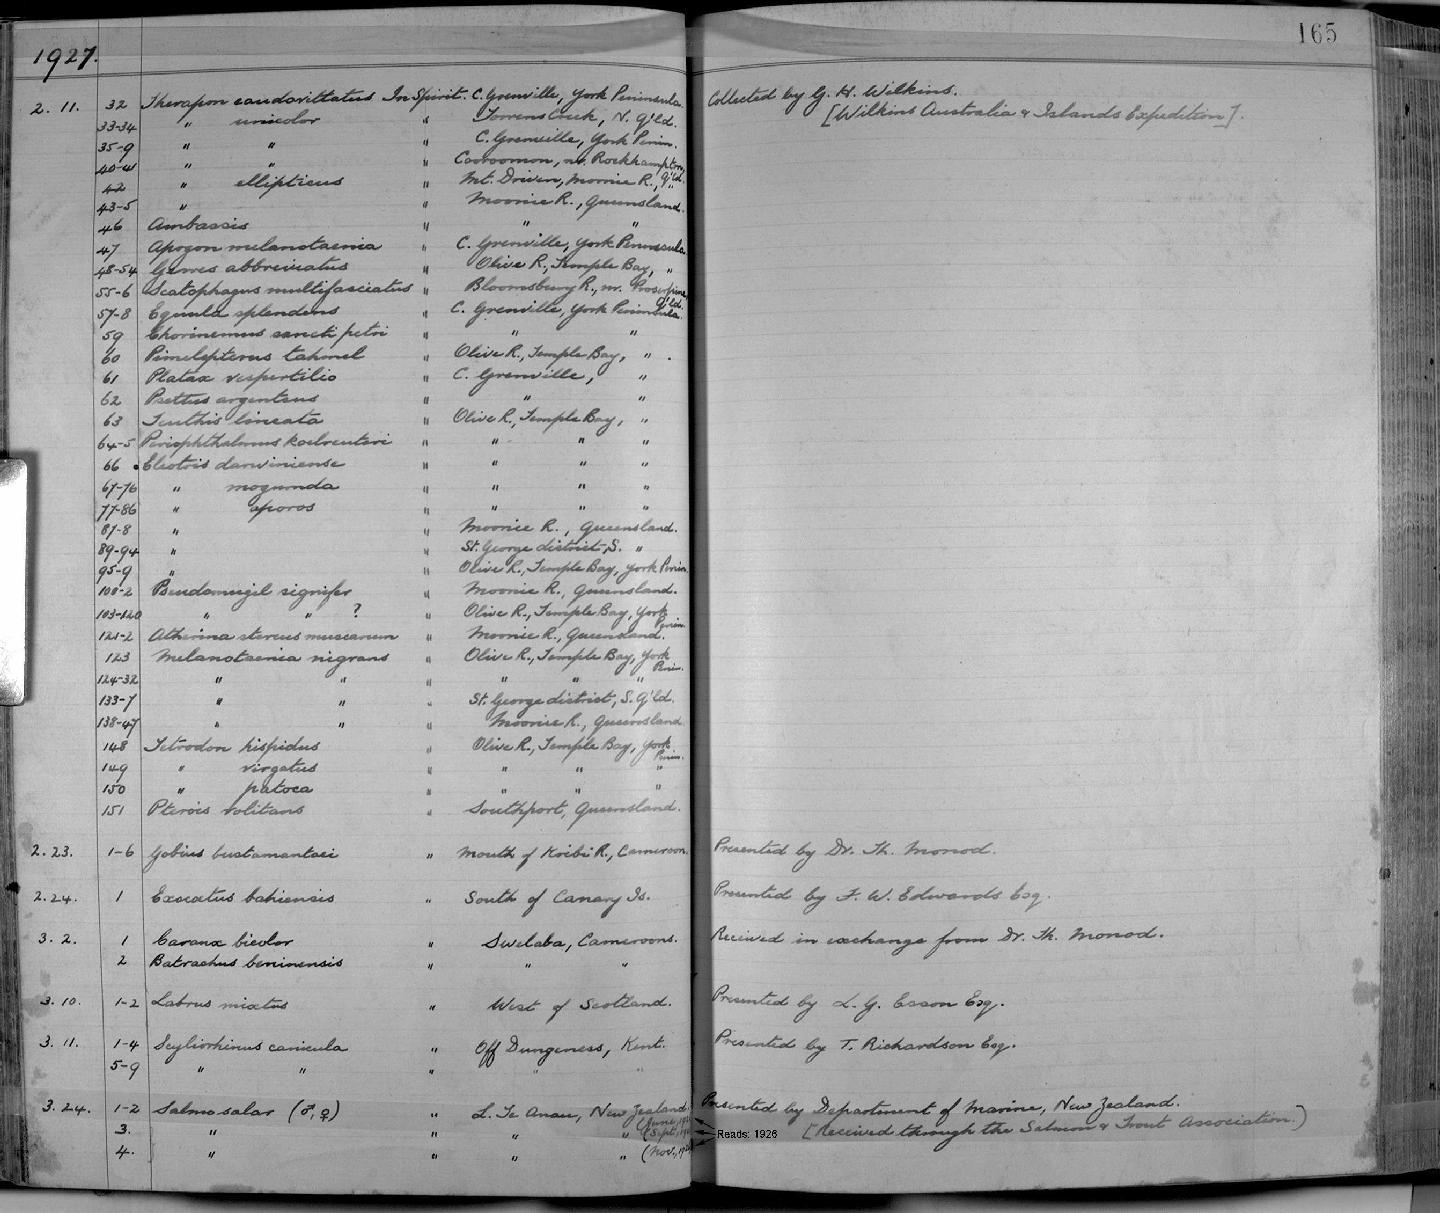 1927.
165
2. 11. 32 Therapon caudavittatus In Spirit. C. Grenville, York Peninsula. Collected by G. H. Wilkins.
33-34 " unicolor " Torrens Creek, N. Q'ld. [Wilkins Australia & Islands Expedition].
35-9 " " " C. Grenville, York Penin.
40-41 " " " Cooroomon, nr. Rockhampton, Q'ld.
42 " ellipticus " Mt. Driven, Moonie R., "
43-5 " " Moonie R., Queensland.
46 Ambassis " " "
47 Apogon melanotaenia " C. Grenville, York Peninsula.
48-54 Gerres abbreviatus " Olive R., Temple Bay, "
55-6 Scatophagus multifasciatus " Bloomsbury R., nr. Proserpine, Q'ld.
57-8 Equula splendens " C. Grenville, York Peninsula.
59 Chorinemus sancti petri " " "
60 Pimelepterus tahmel " Olive R., Temple Bay, " .
61 Platax vespertilio " C. Grenville, "
62 Psettus argenteus " " "
63 Teuthis lineata " Olive R., Temple Bay, "
64-5 Periophthalmus koelreuteri " " " "
66 Eleotris darwiniense " " " "
67-76 " mogurnda " " " "
77-86 " aporos " " " "
87-8 " " Moonie R., Queensland.
89-94 " " St. George district, S. "
95-9 " " Olive R., Temple Bay, York Penin.
100-2 Pseudomugil signifer " Moonie R., Queensland.
103-120 " " ? " Olive R., Temple Bay, York Penin.
121-2 Atherina stercus muscarum " Moonie R., Queensland.
123 Melanotaenia nigrans " Olive R., Temple Bay, York Penin.
124-32 " " " " " "
133-7 " " " St. George district, S. Q'ld.
138-47 " " " Moonie R., Queensland
148 Tetrodon hispidus " Olive R., Temple Bay, York Penin.
149 " virgatus " " " "
150 " patoca " " " "
151 Pterois volitans " Southport, Queensland.
2. 23. 1-6 Gobius bustamantei " Mouth of Kribi R., Cameroon. Presented by Dr. Th. Monod.
2. 24. 1 Exocatus bahiensis " South of Canary Is. Presented by F. W. Edwards Esq.
3. 2. 1 Caranx bicolor " Swelaba, Cameroons. Received in exchange from Dr. Th. Monod.
2 Batrachus beninensis " " "
3. 10. 1-2 Labrus mixtus " West of Scotland. Presented by L. G. Esson Esq.
3. 11. 1-4 Scyliorhinus canicula " Off Dungeness, Kent. Presented by T. Richardson Esq.
5-9 " " " " "
3. 24. 1-2 Salmo salar (♂, ♀) " L. Te Anau, New Zealand. (June, 192 Presented by Department of Marine, New Zealand.
3. " " " " (Sept., 19 Reads: 1926 [Received through the Salmon & Trout Association.)
4. " " " " (Nov., 192